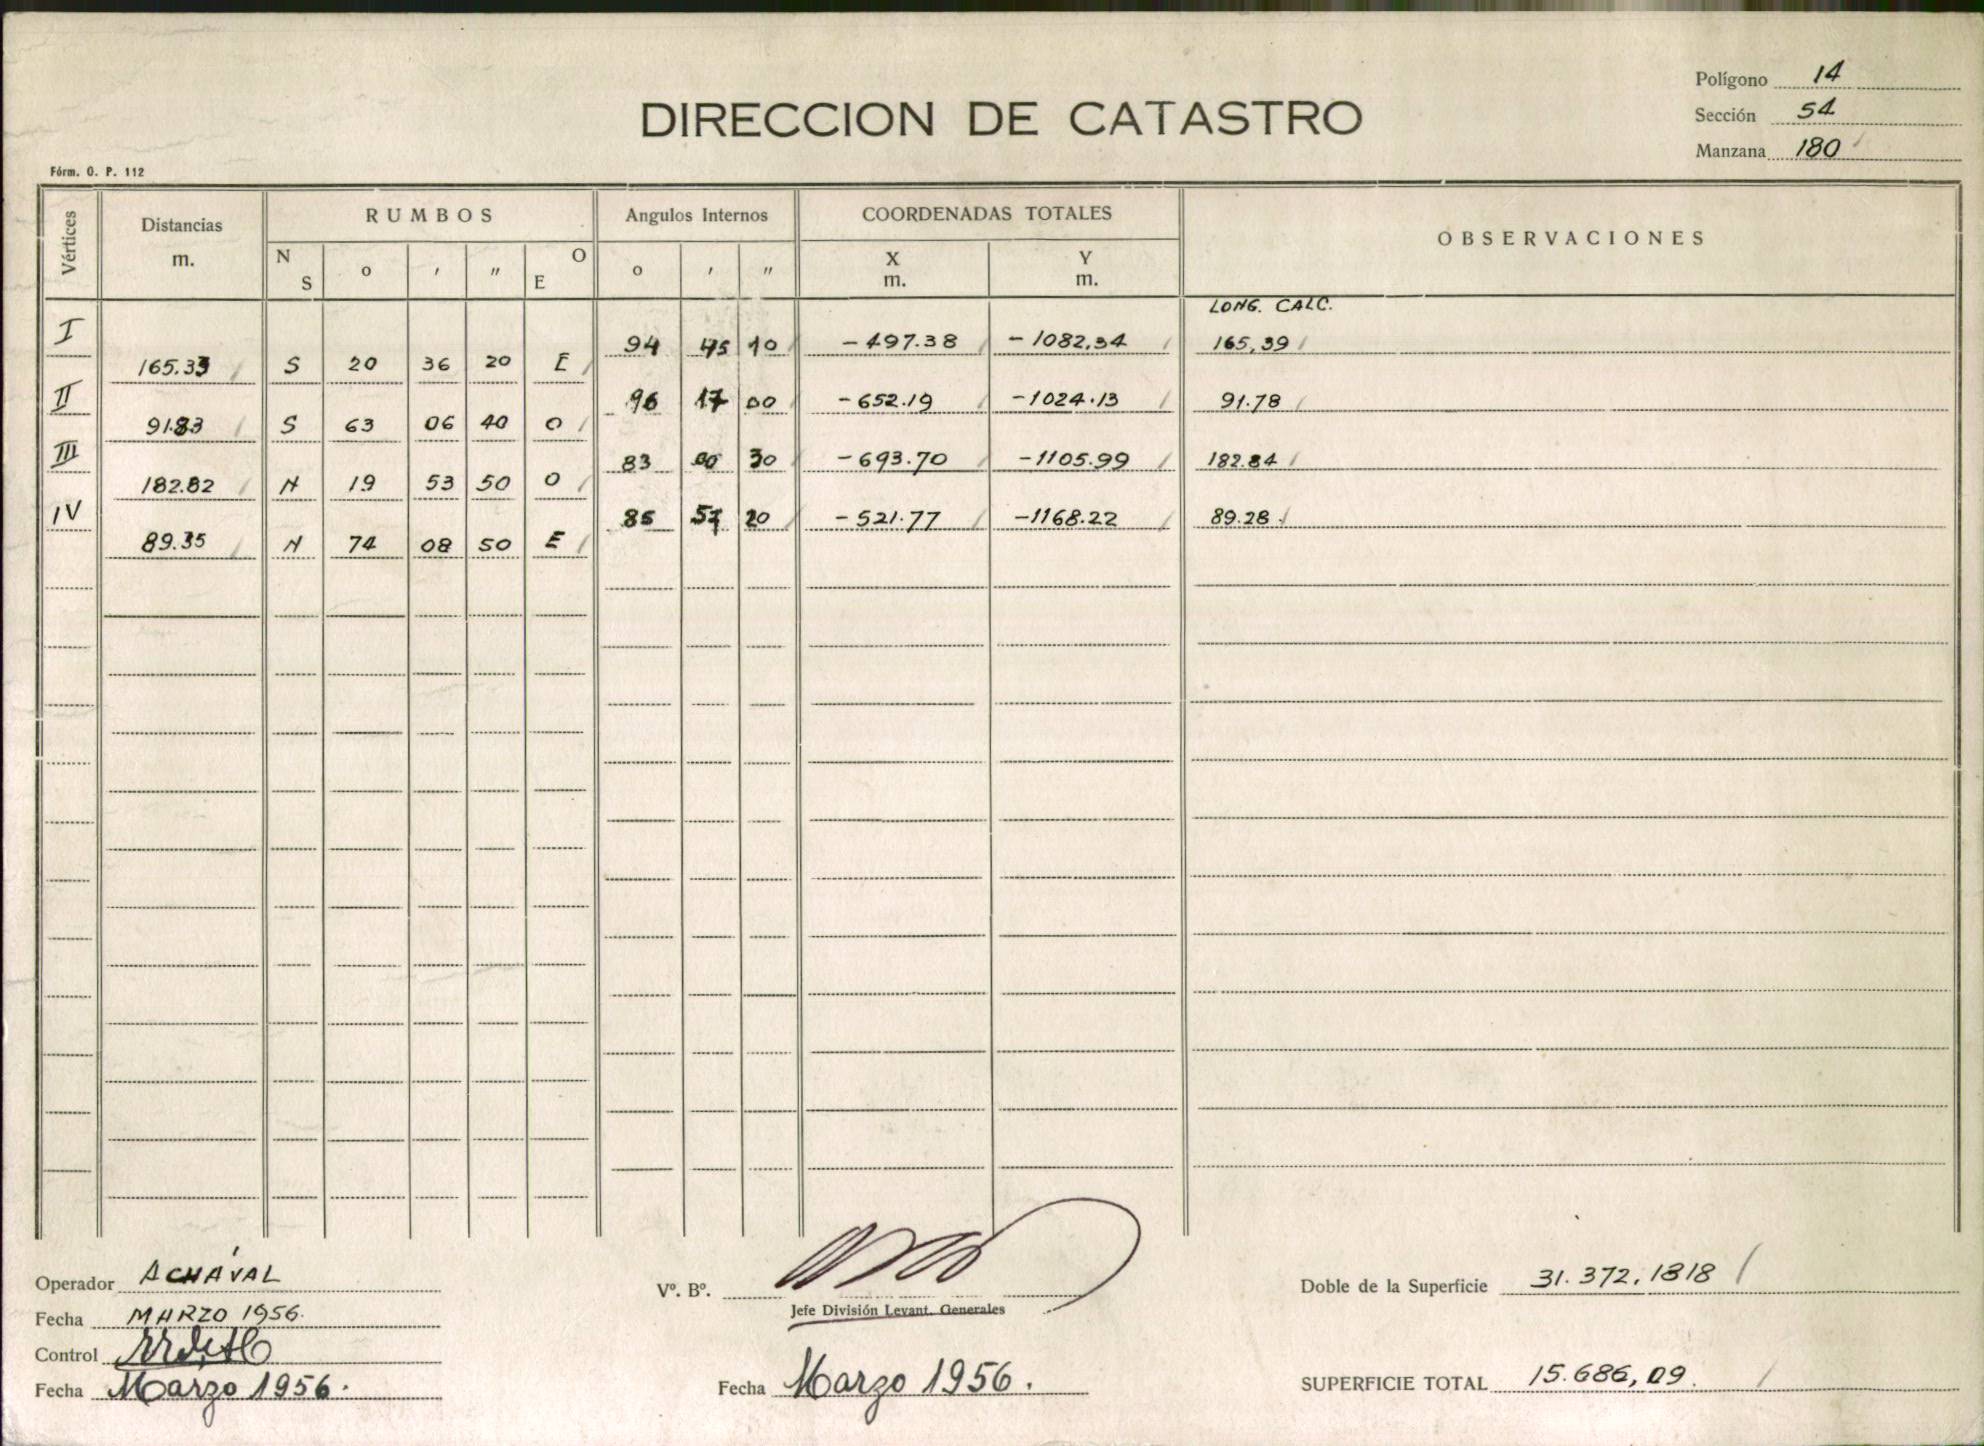 Polígono 14
DIRECCION DE CATASTRO
Sección 54
Manzana 180
Fórm. O. P. 112
Vértices Distancias m. RUMBOS N S o ' " O E Angulos Internos o ' " COORDENADAS TOTALES X m. Y m. OBSERVACIONES
LONG. CALC.
I 94 45 10 -497.38 -1082,34 165,39
165.33 S 20 36 20 E
II 96 17 00 -652.19 -1024.13 91.78
91.83 S 63 06 40 O
III 83 00 30 -693.70 -1105.99 182.84
182.82 N 19 53 50 O
IV 85 57 20 -521.77 -1168.22 89.28
89.35 N 74 08 50 E
Operador ACHÁVAL
Vº. Bº.
Doble de la Superficie 31.372,1818
Jefe División Levant. Generales
Fecha MARZO 1956.
Control
Fecha Marzo 1956.
Fecha Marzo 1956.
SUPERFICIE TOTAL 15.686,09.